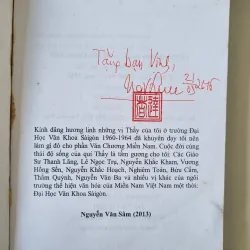 Tặng bạn Vinh,
Kính dâng hương linh những vị Thầy của tôi ở trường Đại
Học Văn Khoa Sàigòn 1960-1964 đã khuyên dạy tôi nên
làm gì đó cho phần Văn Chương Miền Nam. Cuộc đời cùng
thái độ sống của quí Thầy là tấm gương cho tôi: Các Giáo
Sư Thanh Lãng, Lê Ngọc Trụ, Nguyễn Khắc Kham, Vương
Hồng Sển, Nguyễn Khắc Hoạch, Nghiêm Toản, Bửu Cầm,
Thẩm Quỳnh, Nguyễn Văn Ba và nhiều vị khác của ngôi
trường thể hiện văn hóa của Miền Nam Việt Nam một thời:
Đại Học Văn Khoa Sàigòn.
Nguyễn Văn Sâm (2013)